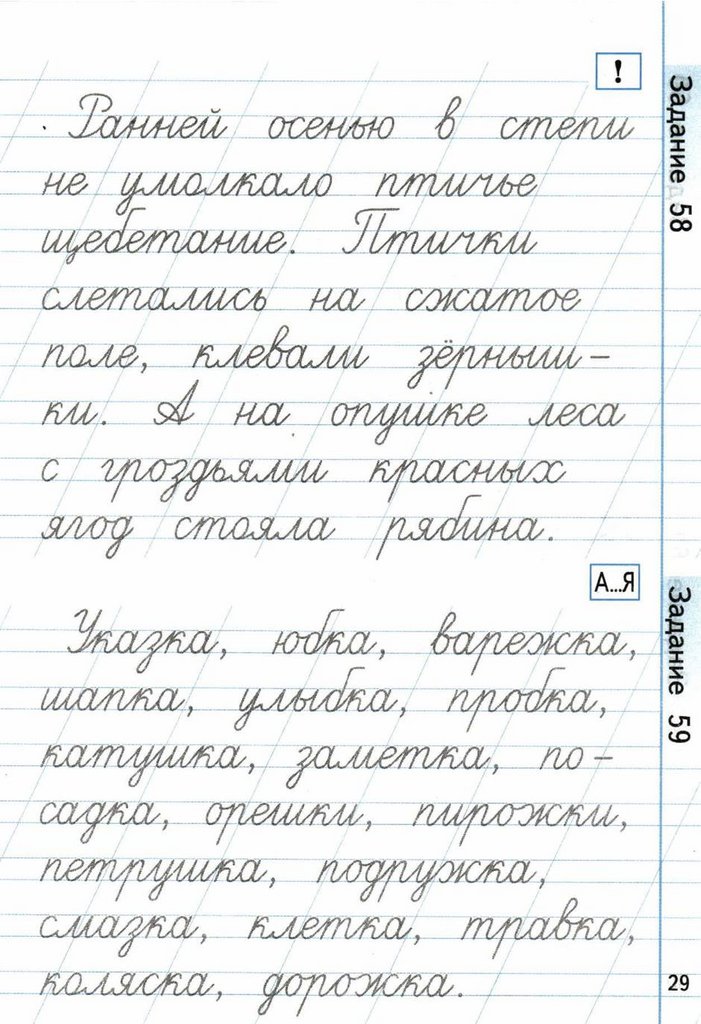 !
Задание 58
Ранней осенью в степи
не умолкало птичье
щебетание. Птички
слетались на сжатое
поле, клевали зёрныш-
ки. А на опушке леса
с гроздьями красных
ягод стояла рябина.
А...Я
Задание 59
Указка, юбка, варежка,
шапка, улыбка, пробка,
катушка, заметка, по-
садка, орешки, пирожки,
петрушка, подружка,
смазка, клетка, травка,
коляска, дорожка.
29